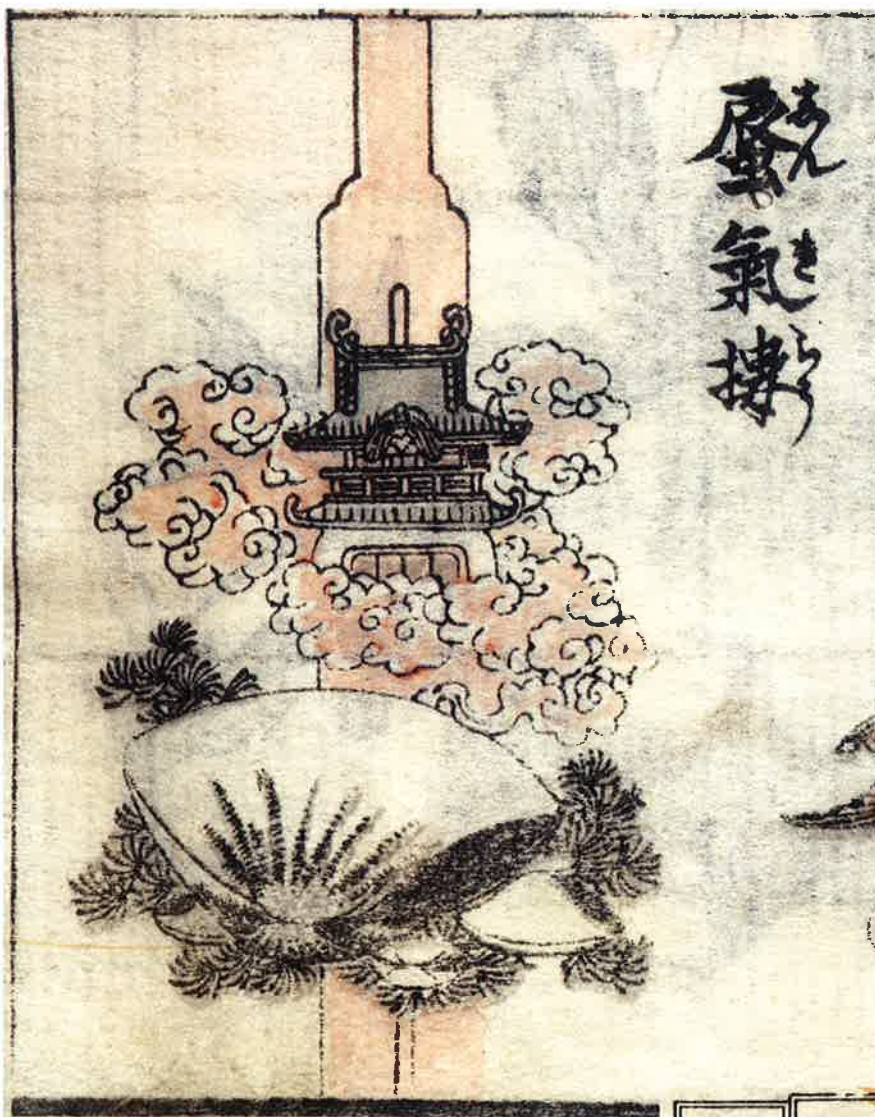 蜃氣樓
しんきろう